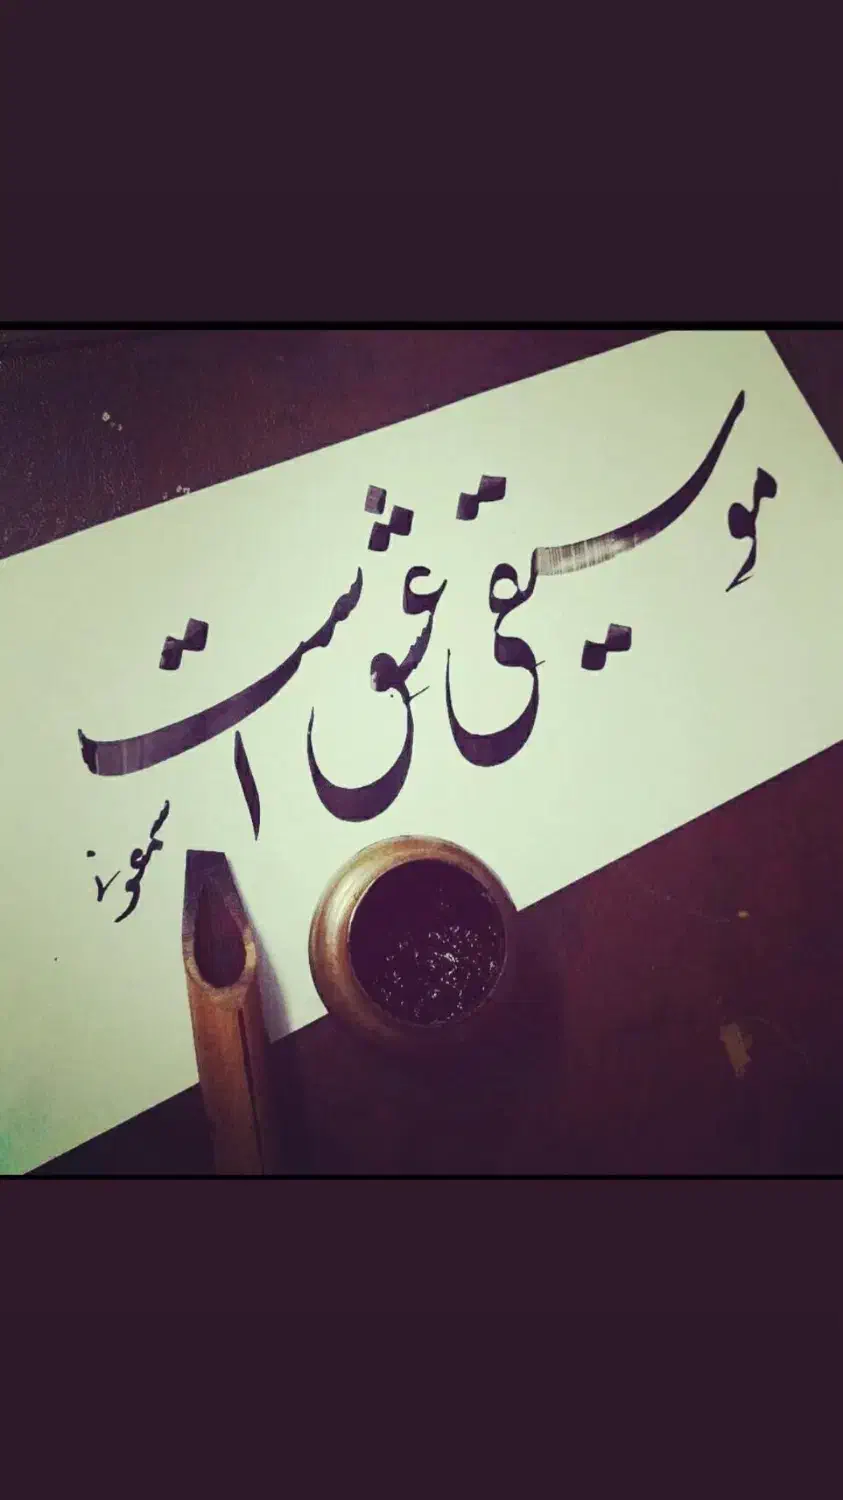 موسیقی عشق است